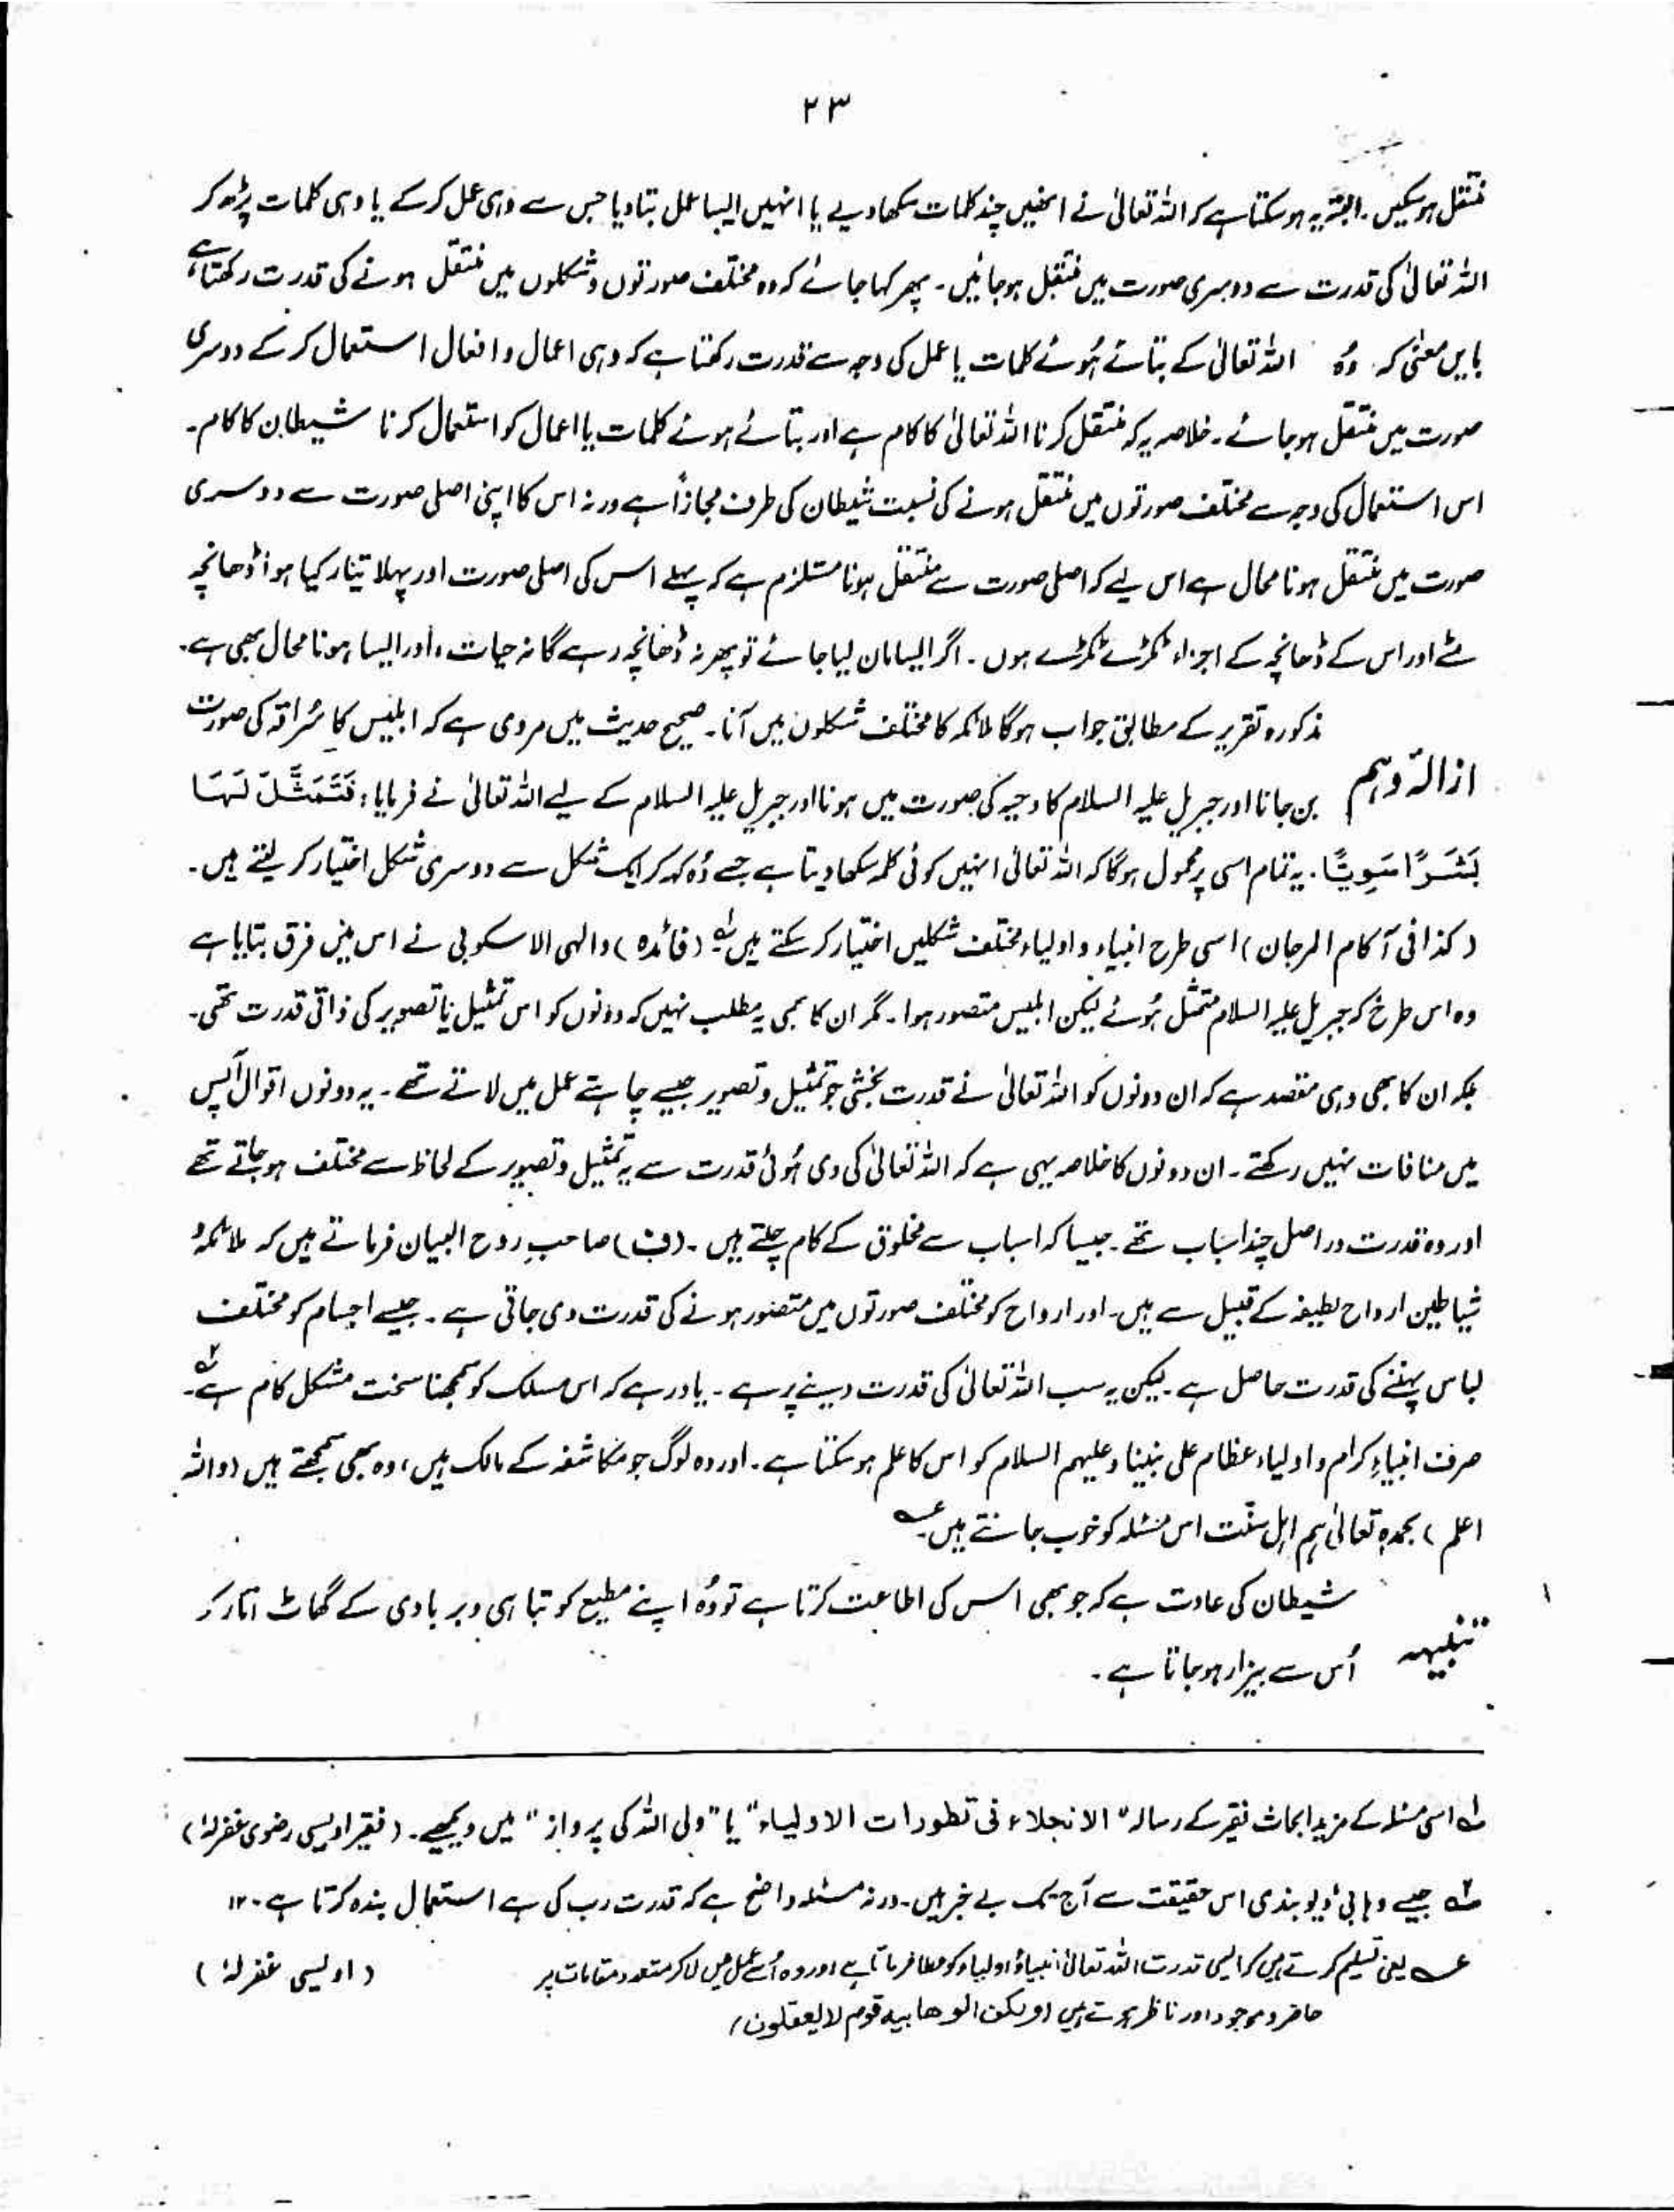 ۲۳
منتقل ہوسکیں۔ البتہ یہ ہوسکتا ہے کہ اللہ تعالیٰ نے انھیں چند کلمات سکھا دیے یا انہیں ایسا عمل بتا دیا جس سے وہی عمل کرکے یا وہی کلمات پڑھ کر
اللہ تعالیٰ کی قدرت سے دوسری صورت میں منتقل ہوجائیں۔ پھر کہا جائے کہ وہ مختلف صورتوں و شکلوں میں منتقل ہونے کی قدرت رکھتا ہے
بایں معنیٰ کہ وُہ اللہ تعالیٰ کے بتائے ہُوئے کلمات یا عمل کی وجہ سے قدرت رکھتا ہے کہ وہی اعمال و افعال استعمال کرکے دوسری
صورت میں منتقل ہوجائے۔ خلاصہ یہ کہ منتقل کرنا اللہ تعالیٰ کا کام ہے اور بتائے ہوئے کلمات یا اعمال کو استعمال کرنا شیطان کا کام۔
اس استعمال کی وجہ سے مختلف صورتوں میں منتقل ہونے کی نسبت شیطان کی طرف مجازاً ہے ورنہ اس کا اپنی اصلی صورت سے دوسری
صورت میں منتقل ہونا محال ہے اس لیے کہ اصلی صورت سے منتقل ہونا مستلزم ہے کہ پہلے اس کی اصلی صورت اور پہلا تیار کیا ہوا ڈھانچہ
مٹے اور اس کے ڈھانچہ کے اجزاء ٹکڑے ٹکڑے ہوں۔ اگر ایسا مان لیا جائے تو پھر نہ ڈھانچہ رہے گا نہ حیات، اور ایسا ہونا محال بھی ہے۔
مذکورہ تقریر کے مطابق جواب ہوگا ملائکہ کا مختلف شکلوں میں آنا۔ صحیح حدیث میں مروی ہے کہ ابلیس کا سُراقہ کی صورت
ازالۂ وہم بن جانا اور جبریل علیہ السلام کا دحیہ کی صورت میں ہونا اور جبریل علیہ السلام کے لیے اللہ تعالیٰ نے فرمایا: فَتَمَثَّلَ لَهَا
بَشَرًا سَوِيًّا۔ یہ تمام اسی پر محمول ہوگا کہ اللہ تعالیٰ انہیں کوئی کلمہ سکھا دیتا ہے جسے وُہ کہہ کر ایک شکل سے دوسری شکل اختیار کر لیتے ہیں۔
(کذا فی آکام المرجان) اسی طرح انبیاء و اولیاء مختلف شکلیں اختیار کرسکتے ہیں لہ (فائدہ) والہی الاسکوبی نے اس میں فرق بتایا ہے
وہ اس طرح کہ جبریل علیہ السلام متمثل ہُوئے لیکن ابلیس متصور ہوا۔ مگر ان کا بھی یہ مطلب نہیں کہ دونوں کو اس تمثیل یا تصویر کی ذاتی قدرت تھی۔
بلکہ ان کا بھی وہی مقصد ہے کہ ان دونوں کو اللہ تعالیٰ نے قدرت بخشی جو تمثیل و تصویر جیسے چاہتے عمل میں لاتے تھے۔ یہ دونوں اقوال آپس
میں منافات نہیں رکھتے۔ ان دونوں کا خلاصہ یہی ہے کہ اللہ تعالیٰ کی دی ہُوئی قدرت سے یہ تمثیل و تصویر کے لحاظ سے مختلف ہوجاتے تھے
اور وہ قدرت دراصل چند اسباب تھے۔ جیسا کہ اسباب سے مخلوق کے کام چلتے ہیں۔ (ف) صاحبِ روح البیان فرماتے ہیں کہ ملائکہ و
شیاطین ارواح لطیفہ کے قبیل سے ہیں۔ اور ارواح کو مختلف صورتوں میں متصور ہونے کی قدرت دی جاتی ہے۔ جیسے اجسام کو مختلف
لباس پہننے کی قدرت حاصل ہے۔ لیکن یہ سب اللہ تعالیٰ کی قدرت دینے پر ہے۔ یاد رہے کہ اس مسلک کو سمجھنا سخت مشکل کام ہے ۲ہ۔
صرف انبیاءِ کرام و اولیاء عظام علی نبینا و علیہم السلام کو اس کا علم ہوسکتا ہے۔ اور وہ لوگ جو مکاشفہ کے مالک ہیں، وہ بھی سمجھتے ہیں (واللہ
اعلم) بحمدہٖ تعالیٰ ہم اہل سنّت اس مسئلہ کو خوب جانتے ہیں عہ
شیطان کی عادت ہے کہ جو بھی اس کی اطاعت کرتا ہے تو وُہ اپنے مطیع کو تباہی و بربادی کے گھاٹ اتار کر
تنبیہہ اُس سے بیزار ہوجاتا ہے۔
لہ اسی مسئلہ کے مزید ابحاث فقیر کے رسالہ "الانجلاء فی تطورات الاولیاء" یا "ولی اللہ کی پرواز" میں دیکھیے۔ (فقیر اویسی رضوی غفرلہٗ)
۲ہ جیسے وہابی دیوبندی اس حقیقت سے آج تک بے خبر ہیں۔ ورنہ مسئلہ واضح ہے کہ قدرت رب کی ہے استعمال بندہ کرتا ہے۔ ۱۲
عہ یعنی تسلیم کرتے ہیں کہ ایسی قدرت اللہ تعالیٰ انبیاء و اولیاء کو عطا فرماتا ہے اور وہ اُسے عمل میں لا کر متعدد مقامات پر (اویسی غفرلہٗ)
حاضر و موجود اور ناظر ہوتے ہیں (ولکن الوھابیہ قوم لا یعقلون)